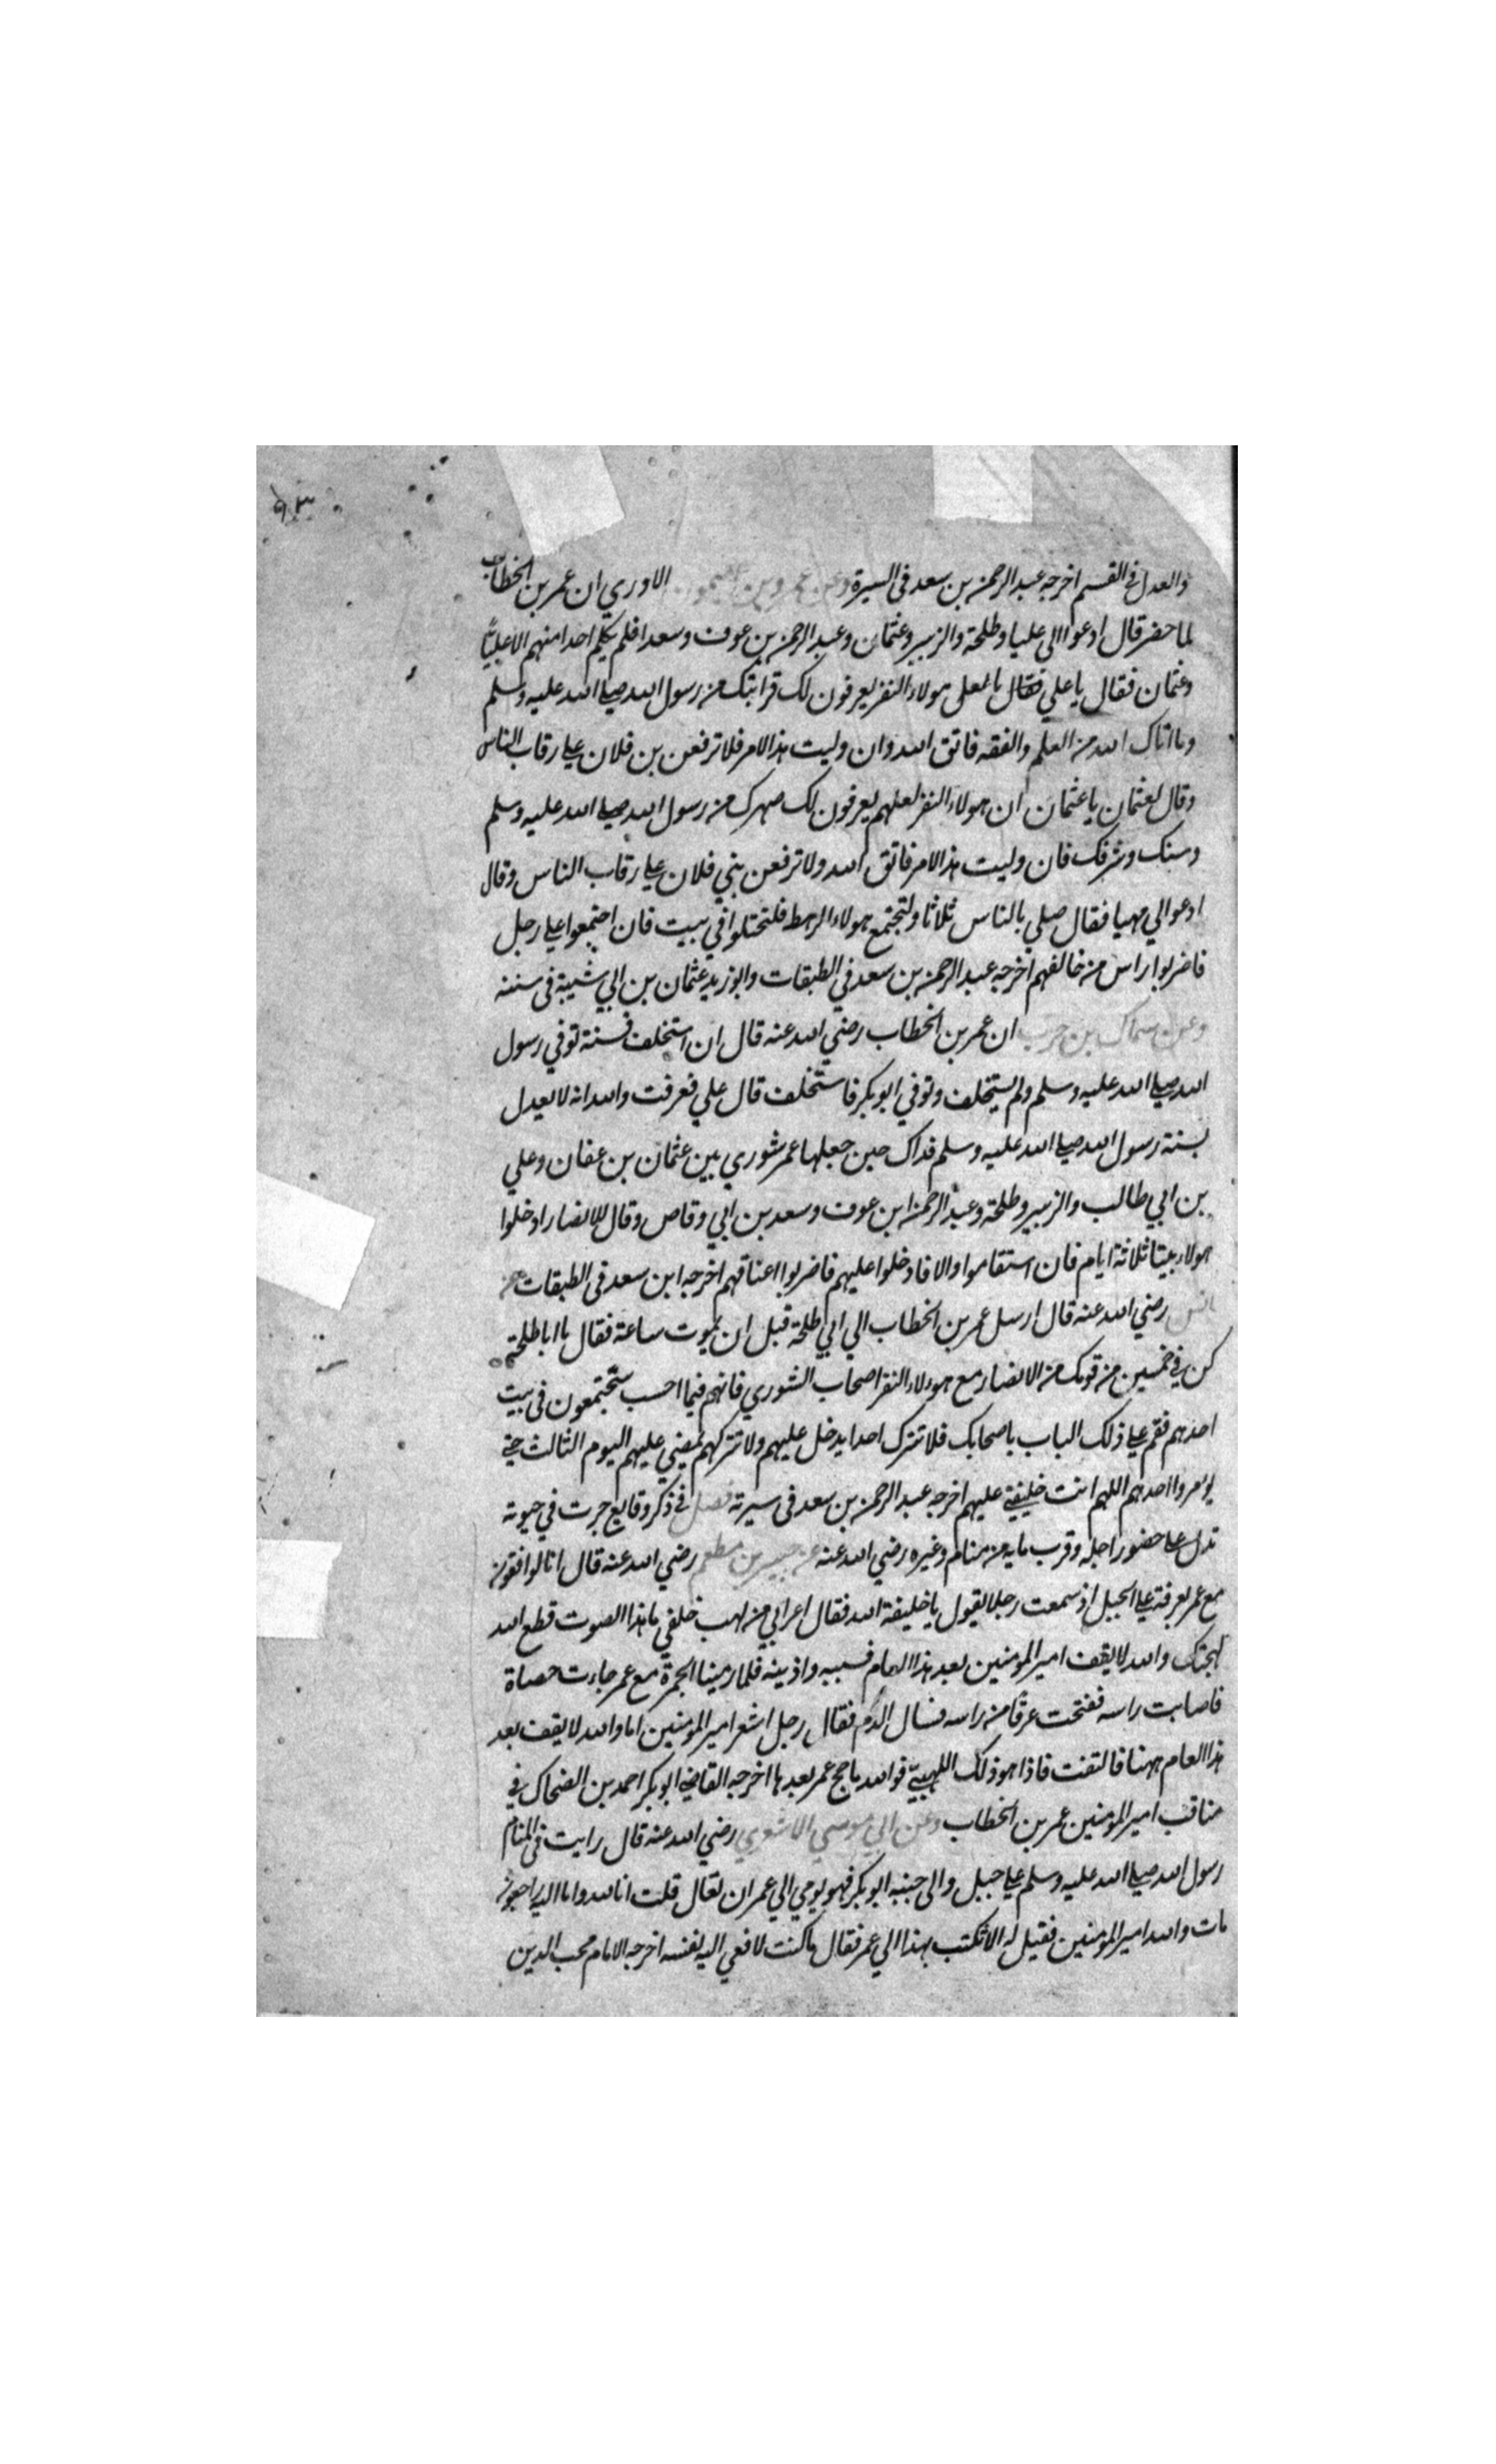 والعدل في القسم اخرجه عبد الرحمن بن سعد في السيرة وعن عمرو بن ميمون الاودي ان عمر بن الخطاب
لما حضر قال ادعوا الي عليا وطلحة والزبير وعثمان وعبد الرحمن بن عوف وسعدا فلم يكلم احدا منهم الا عليًا
وعثمان فقال يا علي فقال يا لعلي هولاء النفر يعرفون لك قرابتك من رسول الله صلى الله عليه وسلم
وما اتاك الله من العلم والفقه فاتق الله وان وليت هذا الامر فلا ترفعن بن فلان على رقاب الناس
وقال لعثمان يا عثمان ان هولاء النفر لعلهم يعرفون لك صهرك من رسول الله صلى الله عليه وسلم
وسنك وشرفك فان وليت هذا الامر فاتق الله ولا ترفعن بني فلان على رقاب الناس وقال
ادعوا لي صهيبا فقال صلي بالناس ثلاثا ولتجتمع هولاء الرهط فلتختلوا في بيت فان اجتمعوا على رجل
فاضربوا راس من خالفهم اخرجه عبد الرحمن بن سعد في الطبقات وابو زيد عثمان بن ابي شيبة في سننه
وعن سماك بن حرب ان عمر بن الخطاب رضي الله عنه قال ان استخلف فسنة توفي رسول
الله صلى الله عليه وسلم ولم يستخلف وتوفي ابو بكر فاستخلف قال علي فعرفت والله انه لا يعدل
بسنة رسول الله صلى الله عليه وسلم فذاك حين جعلها عمر شوري بين عثمان بن عفان وعلي
بن ابي طالب والزبير وطلحة وعبد الرحمن ابن عوف وسعد بن ابي وقاص وقال للانصار ادخلوا
هولاء بيتا ثلاثة ايام فان استقاموا والا فادخلوا عليهم فاضربوا اعناقهم اخرجه ابن سعد في الطبقات عن
انس رضي الله عنه قال ارسل عمر بن الخطاب الي ابي طلحة قبل ان يموت ساعة فقال يا ابا طلحة
كن في خمسين من قومك من الانصار مع هولاء النفر اصحاب الشوري فانهم فيما احسب ستجتمعون في بيت
احدهم فقم على ذلك الباب باصحابك فلا تترك احدا يدخل عليهم ولا تتركهم يمضي عليهم اليوم الثالث حتى
يومروا احدهم اللهم انت خليفتي عليهم اخرجه عبد الرحمن بن سعد في سيرته فصل في ذكر وقايع جرت في حيوته
تدل على حضور اجله وقرب مايه من منام وغيره رضي الله عنه عن جبير بن مطعم رضي الله عنه قال انا لواقفون
مع عمر بعرفة على الجبل اذ سمعت رجلا يقول يا خليفة الله فقال اعرابي من لهب خلفي ما هذا الصوت قطع الله
لهجتك والله لا يقف امير المومنين بعد هذا العام فسببه واذينه فلما رمينا الجمرة مع عمر جاءت حصاة
فاصابت راسه ففتحت عرقا من راسه فسال الدم فقال رجل اشعر امير المومنين اما والله لا يقف بعد
هذا العام ههنا فالتفت فاذا هو ذلك اللهبيّ فوالله ما حج عمر بعدها اخرجه القاضي ابو بكر احمد بن الضحاك في
مناقب امير المومنين عمر بن الخطاب وعن ابي موسي الاشعري رضي الله عنه قال رايت في المنام
رسول الله صلى الله عليه وسلم على جبل والى جنبه ابو بكر فهو يومي الي عمر ان تعال قلت انا لله وانا اليه راجعون
مات والله امير المومنين فقيل له الا تكتب بهذا الي عمر فقال ما كنت لانعي اليه نفسه اخرجه الامام محب الدين